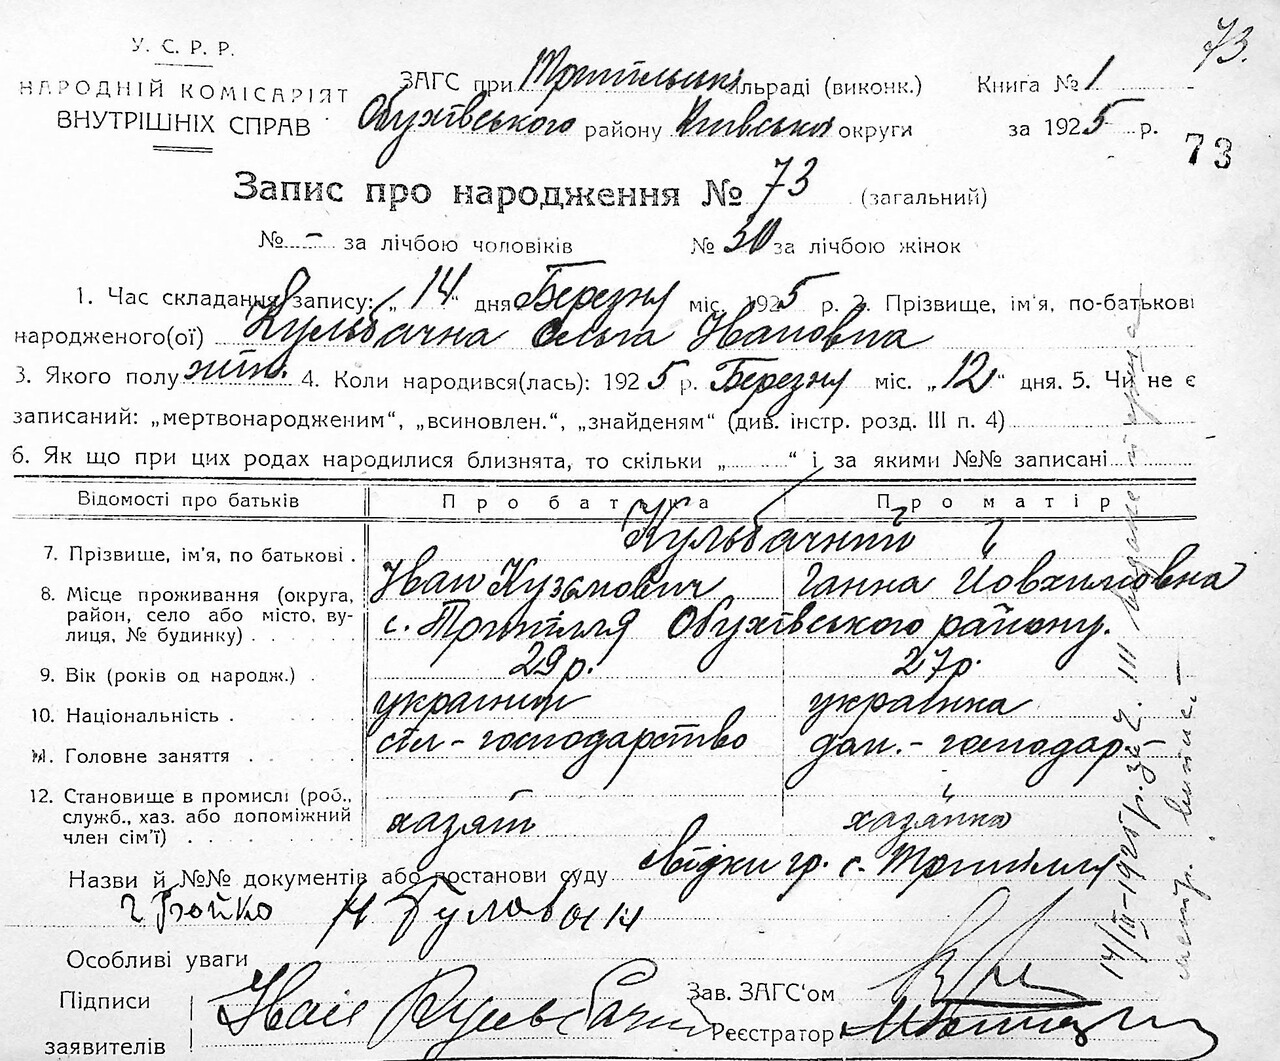 73.
У. С. Р. Р.
НАРОДНІЙ КОМІСАРІЯТ
ВНУТРІШНІХ СПРАВ
ЗАГС при Трипільській сільраді (виконк.)
Обухівського району Київської округи
Книга № 1
за 1925 р.
73
Запис про народження № 73 (загальний)
№ - за лічбою чоловіків № 30 за лічбою жінок
1. Час складання запису: „14“ дня Березня міс. 1925 р. 2. Прізвище, ім'я, по-батькові
народженого(ої) Кульбачна Ольга Івановна
3. Якого полу жін. 4. Коли народився(лась): 1925 р. Березня міс. „12“ дня. 5. Чи не є
записаний: „мертвонародженим“, „всиновлен.“, „знайденям“ (див. інстр. розд. III п. 4)
6. Як що при цих родах народилися близнята, то скільки „ “ і за якими №№ записані
Відомості про батьків Про батька Про матір
7. Прізвище, ім'я, по батькові . Кульбачний
Іван Кузьмович Ганна Йовхимовна
8. Місце проживання (округа,
район, село або місто, ву-
лиця, № будинку) . . . . .
с. Трипілля Обухівського району.
9. Вік (років од народж.) . 29 р. 27 р.
10. Національність . . . . українець українка
11. Головне заняття . . . . сіл-господарство дом.-господар-
12. Становище в промислі (роб.,
служб., хаз. або допоміжний
член сім'ї) . . . . . . .
хазяїн хазяйка
Назви й №№ документів або постанови суду свідки гр. с. Трипілля
Бойко
Особливі уваги
Підписи
заявителів
Іван Кульбачний
Зав. ЗАГС'ом
Реєстратор
14/III-1925 р. за ч. 111 видане
метр. випис.-